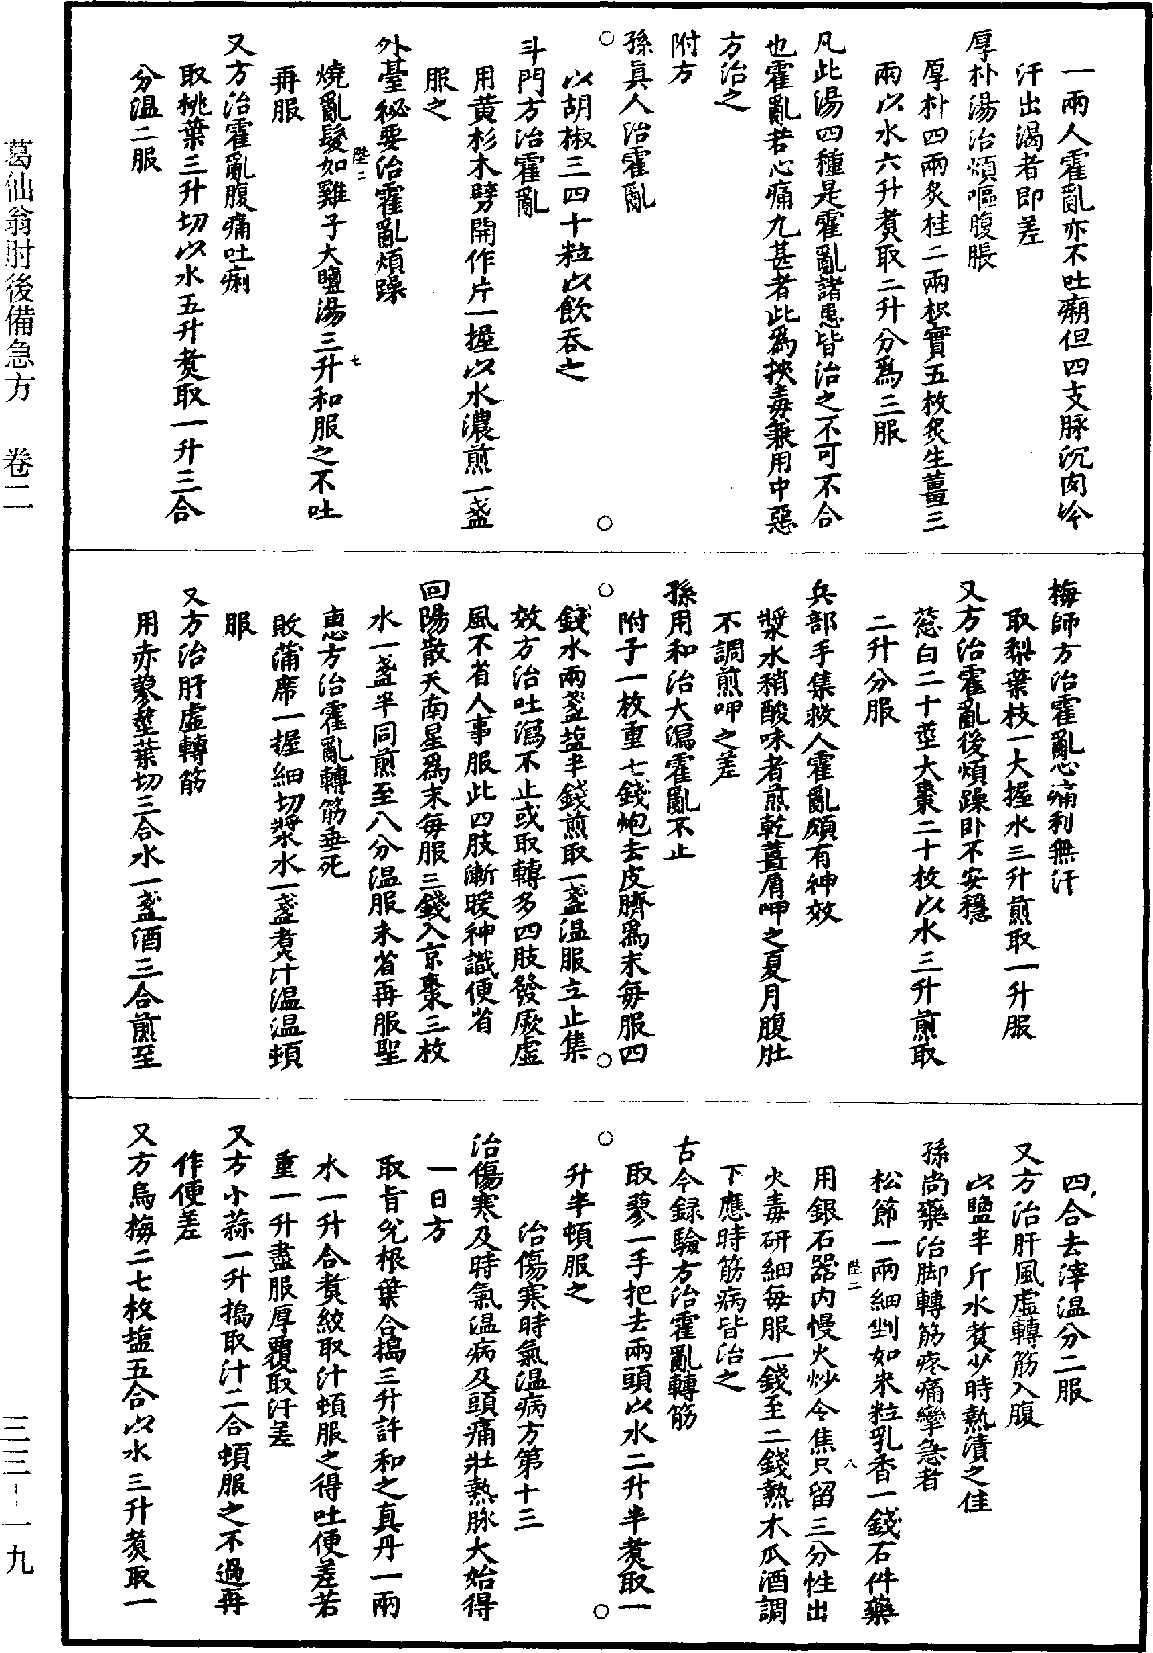 一兩人霍亂亦不吐痢但四支脉沉肉冷
汗出渴者即差
厚朴湯治煩嘔腹脹
厚朴四兩炙桂二兩枳實五枚炙生薑三
兩以水六升煑取二升分爲三服
凡此湯四種是霍亂諸患皆治之不可不合
也霍亂若心痛九甚者此爲挾毒兼用中惡
方治之
附方
孫真人治霍亂
以胡椒三四十粒以飲吞之
斗門方治霍亂
用黄杉木劈開作片一握以水濃煎一盞
服之
外臺秘要治霍亂煩躁
燒亂髮如雞子大鹽湯三升和服之不吐
再服
又方治霍亂腹痛吐痢
取桃葉三升切以水五升煑取一升三合
分温二服
陛二
七
梅師方治霍亂心痛利無汗
取梨葉枝一大握水三升煎取一升服
又方治霍亂後煩躁卧不安穩
葱白二十莖大棗二十枚以水三升煎取
二升分服
兵部手集救人霍亂頗有神效
漿水稍酸味者煎乾薑屑呷之夏月腹肚
不調煎呷之差
孫用和治大瀉霍亂不止
附子一枚重七錢炮去皮臍爲末每服四
錢水兩盞鹽半錢煎取一盞温服立止集
效方治吐瀉不止或取轉多四肢發厥虛
風不省人事服此四肢漸暖神識便省
回陽散天南星爲末每服三錢入京棗三枚
水一盞半同煎至八分温服未省再服聖
惠方治霍亂轉筋垂死
敗蒲席一握細切漿水一盞煑汁温温頓
服
又方治肝虛轉筋
用赤蓼莖葉切三合水一盞酒三合煎至
四合去滓温分二服
又方治肝風虛轉筋入腹
以鹽半斤水煑少時熱漬之佳
孫尚藥治脚轉筋疼痛攣急者
松節一兩細剉如米粒乳香一錢石件藥
用銀石器内慢火炒令焦只留三分性出
火毒研細每服一錢至二錢熱木瓜酒調
下應時筋病皆治之
古今録驗方治霍亂轉筋
取蓼一手把去兩頭以水二升半煑取一
升半頓服之
治傷寒時氣温病方第十三
治傷寒及時氣温病及頭痛壯熱脉大始得
一日方
取旨兊根葉合搗三升許和之真丹一兩
水一升合煑絞取汁頓服之得吐便差若
重一升盡服厚覆取汗差
又方小蒜一升搗取汁二合頓服之不過再
作便差
又方烏梅二七枚鹽五合以水三升煑取一
陛二
八
葛仙翁肘後備急方 卷二
三三-一九